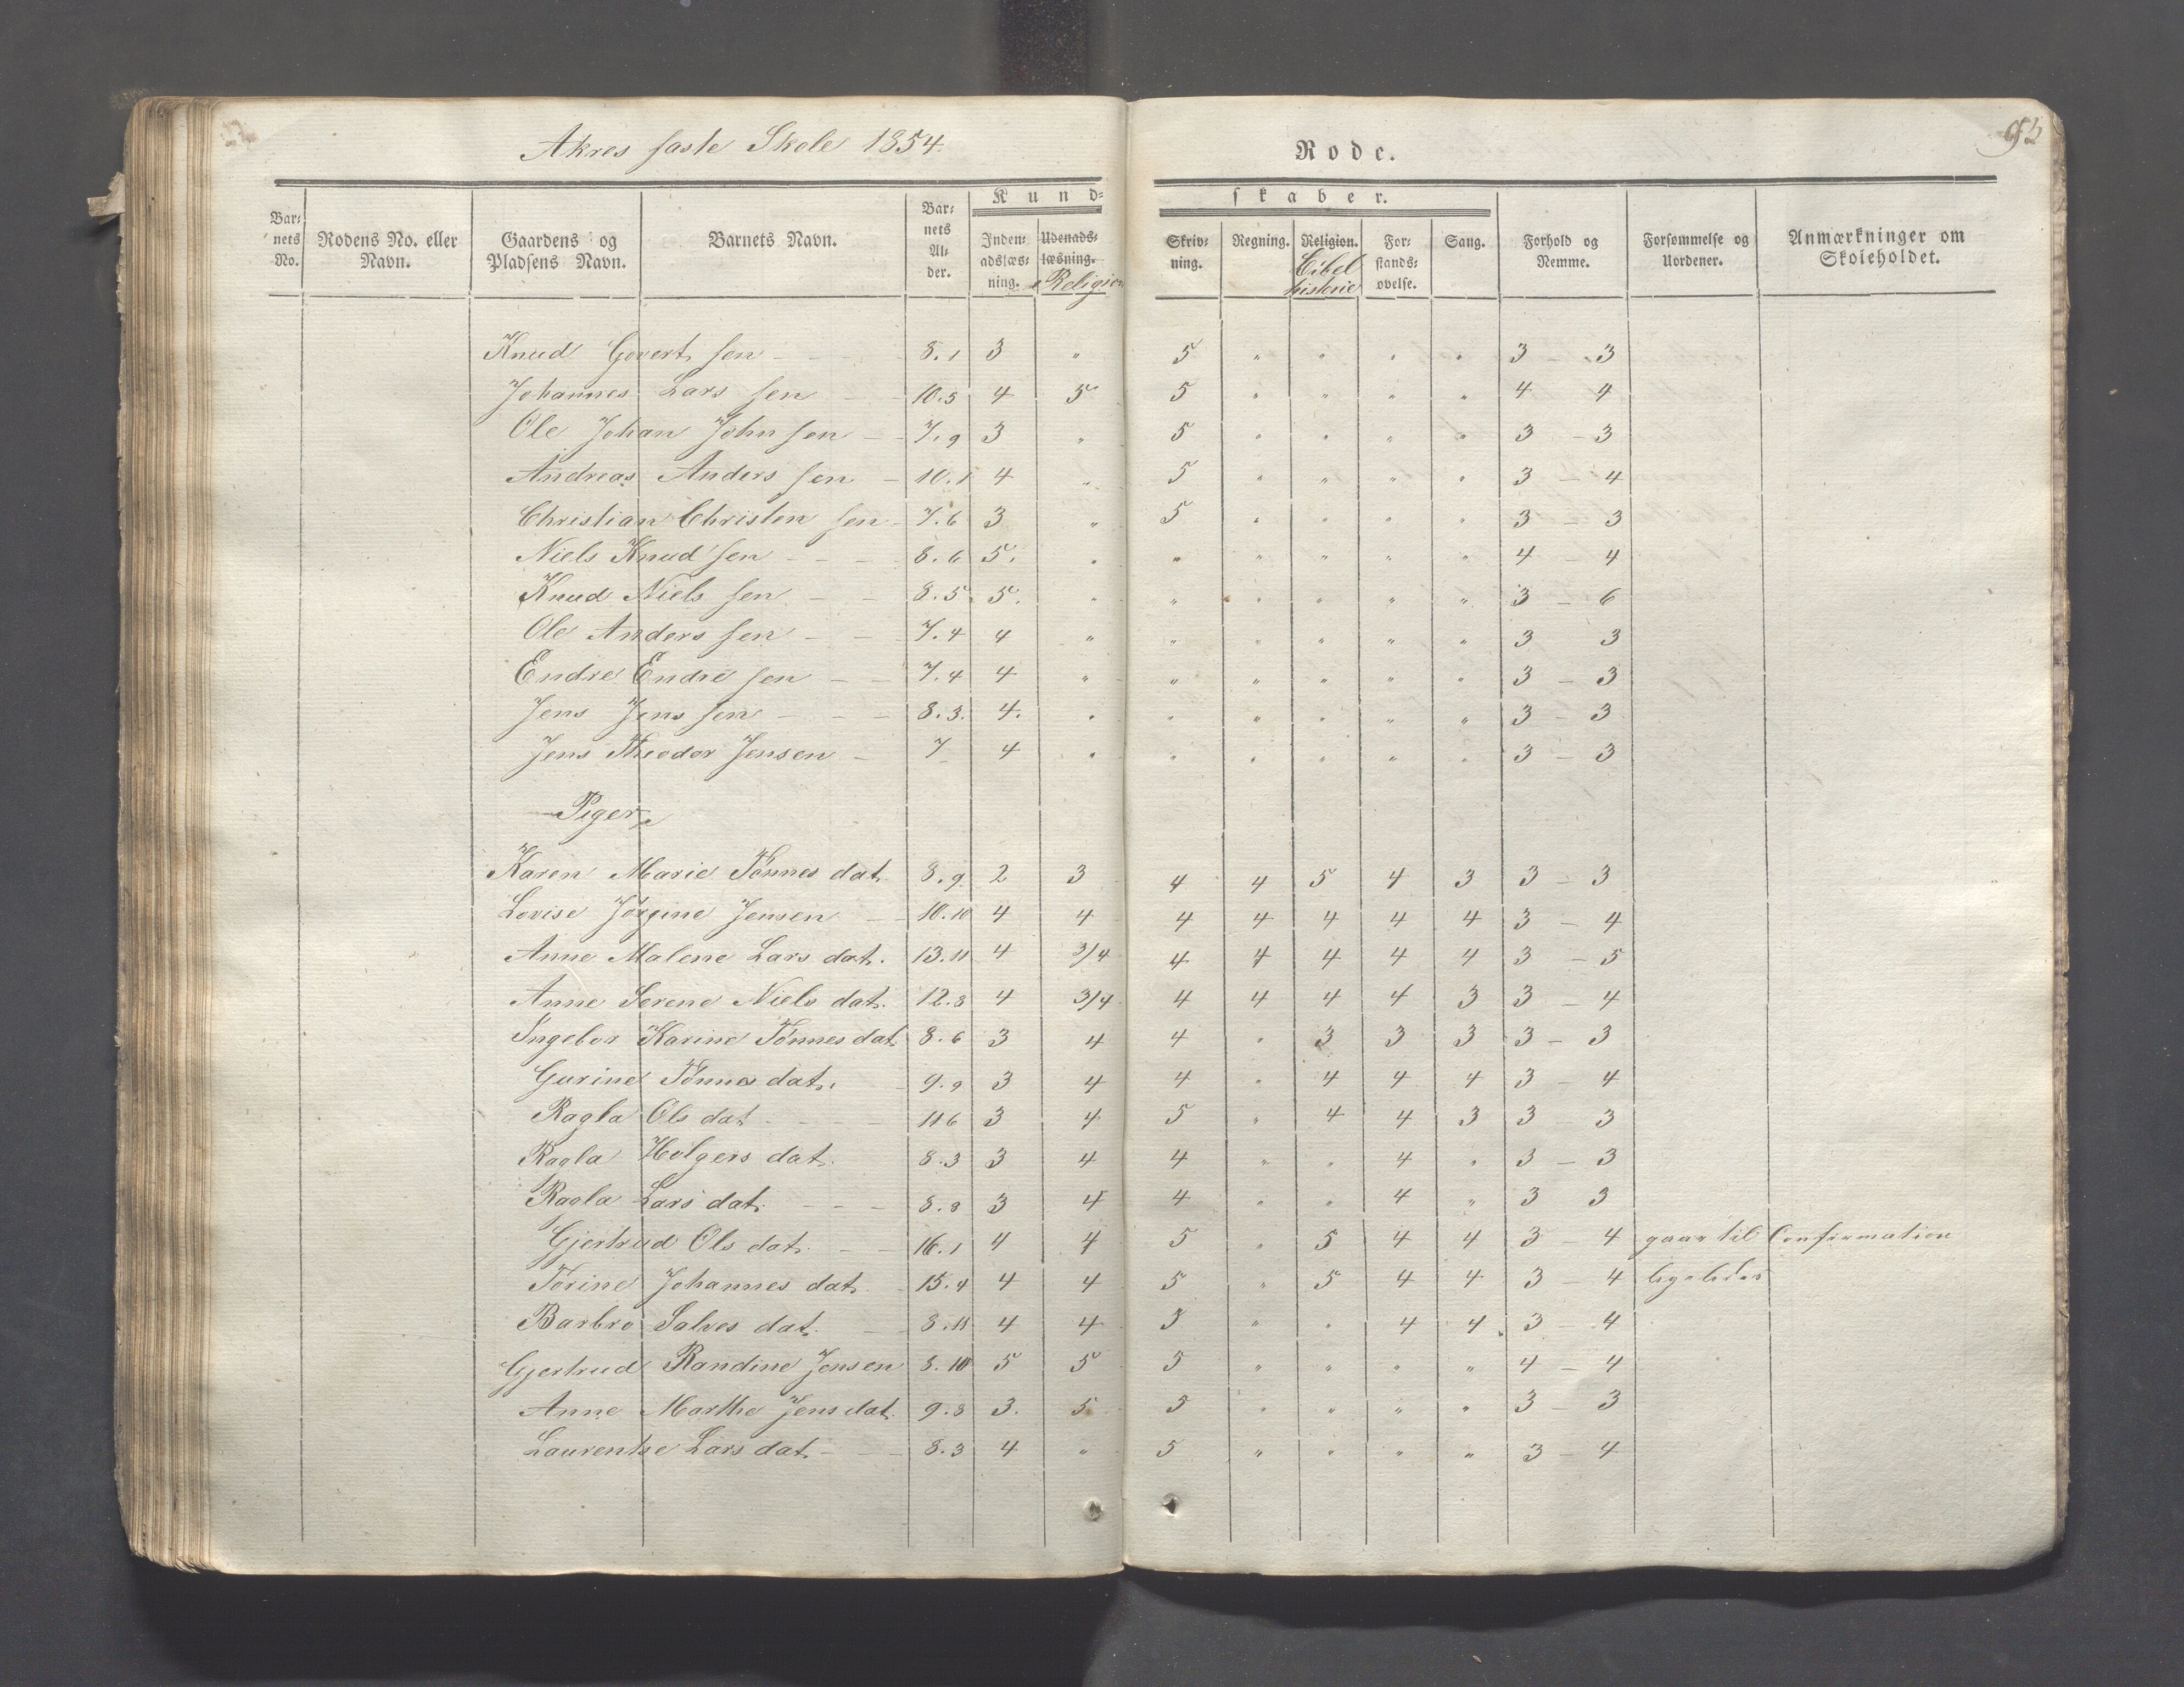 Akres faste Skole 1854.
Rode.
95
Kund=
skaber.
Bar=nets No. Rodens No. eller Navn. Gaardens og Pladsens Navn. Barnets Navn. Bar=nets Al=der. Inden=adslæs=ning. Udenads=læsning. Religion Skriv=ning. Regning. Religion. Bibel historie For=stands=øvelse. Sang. Forhold og Nemme. Forsømmelse og Uordener. Anmærkninger om Skoleholdet.
Knud Govert sen - - 8.1 3 " 5 " " " " 3 - 3
Johannes Lars sen - - 10.5 4 5 5 " " " " 4 4
Ole Johan John sen - - 7.9 3 " 5 " " " " 3 - 3
Andreas Anders sen - 10.1 4 " 5 " " " " 3 - 4
Christian Christen sen - 7.6 3 " 5 " " " " 3 - 3
Niels Knud sen - - - 8.6 5. " " " " " " 4 - 4
Knud Niels sen - - 8.5 5. " " " " " " 3 - 6
Ole Anders sen - - 7.4 4 " " " " " " 3 3
Endre Endre sen - - 7.4 4 " " " " " " 3 - 3
Jens Jens sen - - - 8.3. 4. " " " " " " 3 - 3
Jens Theodor Jensen - 7 4 " " " " " " 3 - 3
Piger
Karen Marie Tönnes dat. 8.9 2 3 4 4 5 4 3 3 - 3
Lovise Jörgine Jensen - - 10.10 4 4 4 4 4 4 4 3 - 4
Anne Malene Lars dat. 13.11 4 3/4 4 4 4 4 4 3 - 5
Anne Serene Niels dat. 12.8 4 3/4 4 4 4 4 3 3 - 4
Ingebor Karine Tönnes dat. 8.6 3 4 4 " 3 3 3 3 - 3
Gurine Tönnes dat. - 9.9 3 4 4 " 4 4 4 3 - 4
Ragla Ols dat - - - 11 6 3 4 5 " 4 4 3 3 - 3
Ragla Holgers dat. 8.3 3 4 4 " " 4 " 3 - 3
Ragla Lars dat. - - - 8.8 3 4 4 " " 4 " 3 3
Gjertrud Ols dat. - - 16.1 4 4 5 " 5 4 4 3 - 4 gaar til Confirmation
Torine Johannes dat. - 15.4 4 4 5 " 5 4 4 3 - 4 ligeledes
Barbro Salves dat. - - 8.11 4 4 5 " " 4 4. 3 - 4
Gjertrud Randine Jensen 8.10 5 5 5 " " " " 4 - 4
Anne Marthe Jens dat. 9.8 3. 5 5 " " " " 3 - 3
Laurentse Lars dat. - - 8.3 4 " 5 " " " " 3 - 4